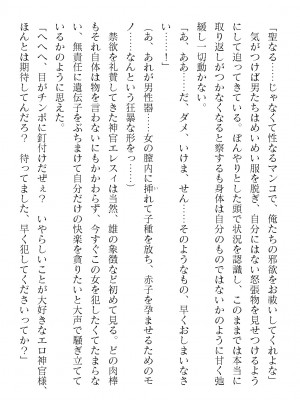 「聖なる……じゃなくて性なるマンコで、俺たちの邪欲をお祓いしてくれよ」
気がつけば男たちはめいめい服を脱ぎ、自分にはない怒張物を見せつけるよう
にして迫ってきている。ぼんやりとした頭で状況を認識し、このままでは本当に
取り返しがつかなくなると察するも身体は自分のものではないかのように甘く弛
緩し一切動かない。
「あ、ああ……だ、ダメ、いけま、せん……そのような、早くおしまいなさ
い……！」
（あ、あれが男性器……女の膣内に挿れて子種を放ち、赤子を孕ませるためのモ
ノ……なんという狂暴な形をっ……）
禁欲を礼賛してきた神官エレスィは当然、雄の象徴など初めて見る。どの肉棒
もそれ自体は物を言わないにもかかわらず、今すぐこの女を犯したくてたまらな
い、無責任に遺伝子をぶちまけて自分だけの快楽を貪りたいと大声で騒ぎ立てて
いるかのように思えた。
「へへへ、目がチンポに釘付けだぜぇ？　いやらしいことが大好きなエロ神官様、
ほんとは期待してんだろ？　待ってました、早く犯してくださいってか？」